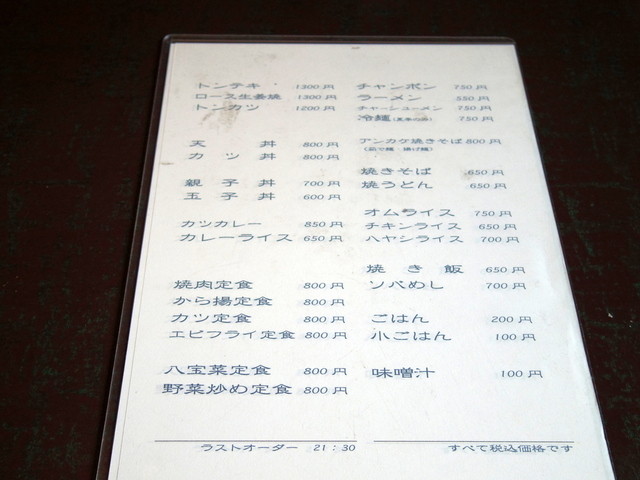 トンテキ 1300円
ロース生姜焼 1300円
トンカツ 1200円
天丼 800円
カツ丼 800円
親子丼 700円
玉子丼 600円
カツカレー 850円
カレーライス 650円
焼肉定食 800円
から揚定食 800円
カツ定食 800円
エビフライ定食 800円
八宝菜定食 800円
野菜炒め定食 800円
ラストオーダー 21:30
チャンポン 750円
ラーメン 550円
チャーシューメン 750円
冷麺 750円
アンカケ焼きそば 800円
焼きそば 650円
焼うどん 650円
オムライス 750円
チキンライス 650円
ハヤシライス 700円
焼き飯 650円
ソバめし 700円
ごはん 200円
小ごはん 100円
味噌汁 100円
すべて税込価格です